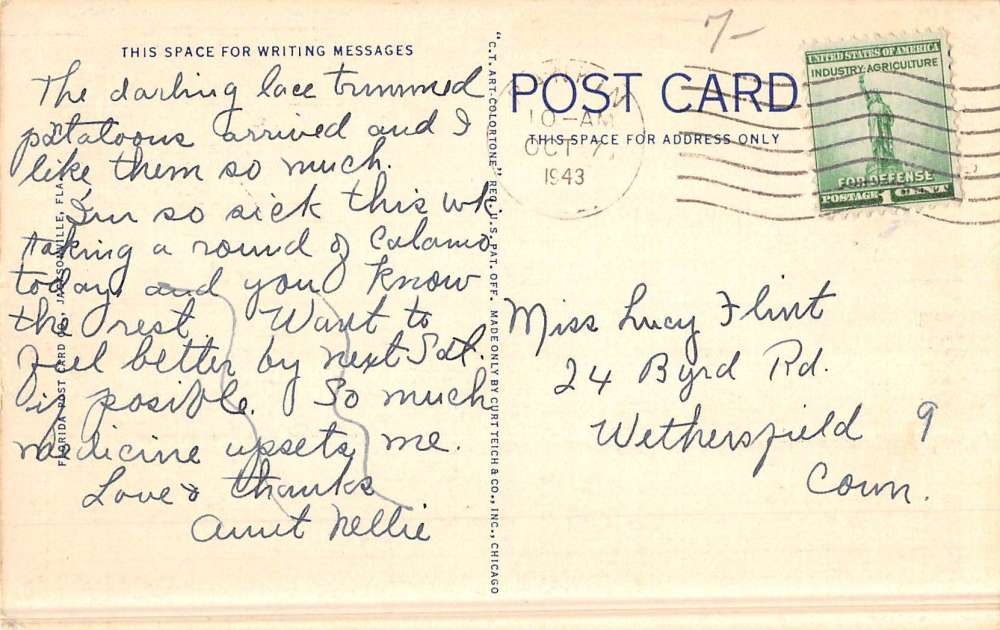 THIS SPACE FOR WRITING MESSAGES
The darling lace trimmed
pataloons arrived and I
like them so much.
I'm so sick this wk
taking a round of Calamo
today and you know
the rest. Want to
feel better by next Sat.
if posible. So much
medicine upsets me.
Love & thanks
Aunt Nellie
FLORIDA POST CARD CO., JACKSONVILLE, FLA.
"C.T. ART-COLORTONE" REG. U.S. PAT. OFF. MADE ONLY BY CURT TEICH & CO., INC., CHICAGO
7-
POST CARD
THIS SPACE FOR ADDRESS ONLY
10-AM
OCT 7
1943
UNITED STATES OF AMERICA
INDUSTRY-AGRICULTURE
FOR DEFENSE
POSTAGE 1 CENT
Miss Lucy Flint
24 Byrd Rd.
Wethersfield 9
Conn.